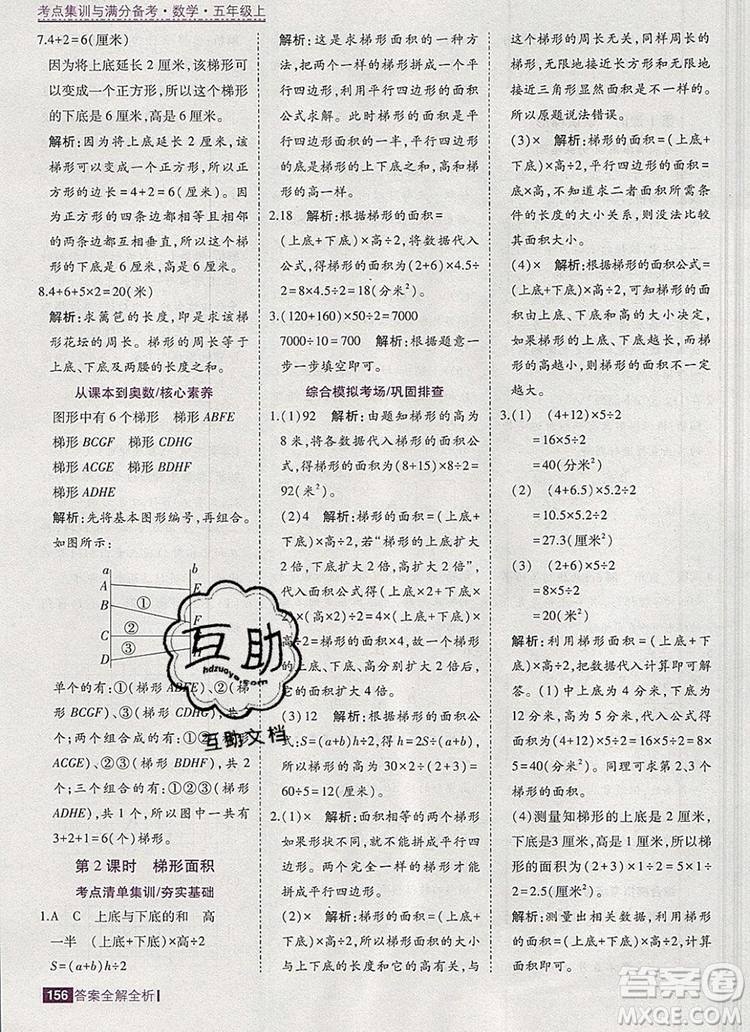 考点集训与满分备考·数学·五年级上
7.4+2=6(厘米)
因为将上底延长 2 厘米,该梯形可
以变成一个正方形,所以这个梯形
的下底是 6 厘米,高是 6 厘米。
解析:因为将上底延长 2 厘米,该
梯形可以变成一个正方形,所以正
方形的边长=4+2=6(厘米)。因
为正方形的四条边都相等且相邻
的两条边都互相垂直,所以这个梯
形的下底是 6 厘米,高是 6 厘米。
8.4+6+5×2=20(米)
解析:求篱笆的长度,即求这个梯
形花坛的周长。梯形周长等于上
底、下底及两腰的长度之和。
从课本到奥数/核心素养
图形中有 6 个梯形 梯形 ABFE
梯形 BCGF 梯形 CDHG
梯形 ACGE 梯形 BDHF
梯形 ADHE
解析:先将基本图形编号,再组合。
如图所示:
a
b
A
E
B
①
F
C
②
D
③
单个的有:①(梯形 ABFE)、②(梯
形 BCGF)、③(梯形 CDHG),共 3
个;两个组成的有:①②(梯形
ACGE)、②③(梯形 BDHF),共 2
个;三个组成的有:①②③(梯形
ADHE),共 1 个。所以一共有
3+2+1=6(个)梯形。
第 2 课时 梯形面积
考点清单集训/夯实基础
1.A C 上底与下底的和 高
一半 (上底+下底)×高÷2
S=(a+b)h÷2
156 答案全解全析
解析:求梯形面积的一种方法,
即把两个一样的梯形拼成一个平
行四边形,利用平行四边形的面积
公式求解。此时梯形的面积是平
行四边形面积的一半,平行四边形
的底是梯形的上下底之和,高和梯
形的高一样。
2.18 解析:根据梯形的面积=
(上底+下底)×高÷2,将数据代入
公式,得梯形的面积(2+6)×4.5÷
2=18(分米²)。
3.(120+160)×50÷2=7000
7000÷10=700 解析:根据题意一
步一步填空即可。
综合模拟考场/巩固排查
1.(1)92 解析:由题知梯形的高为
8 米,将各数据代入梯形的面积公
式,得面积为(8+15)×8÷2=
92(米²)。
(2)4 解析:梯形的面积=(上底+
下底)×高÷2,若梯形的上下底扩大
2 倍,下底扩大 2 倍,高扩大 2 倍,
代入面积公式得(上底×2+下底×
2)×(高×2)÷2=4×(上底+下底)×
高÷2,上底、下底、高分别扩大 2
倍后的面积比原来的面积扩大 4 倍。
(3)12 解析:根据梯形的面积公
式:S=(a+b)h÷2,得 h=2S÷(a+
b),所以高为 30×2÷(2+3)=
60÷5=12(分米)。
2.(1)× 解析:面积相等的两个梯形
如果形状不同,就不能拼成平行四
边形。
(2)× 解析:平行四边形能分割成
两个面积相等的三角形,分割成的
两个三角形的高与平行四边形的
高相等,底与平行四边形的底相
等。三角形面积=底×高÷2,所以
平行四边形可分割成两个面积相
等的三角形。但面积无限接近三角
形的梯形的周长无限地接近三角
形,无限地接近但无法比拟三角形。
所以原题说法错误。
(3)× 解析:梯形的面积=(上底+
下底)×高÷2,平行四边形面积=
底×高,因不知道求二者面积所需条
件的长度的大小关系,则没法比较
面积大小。
(4)× 解析:由梯形的面积公式=
(上底+下底)×高÷2 可知,它由上
底和下底以及高的大小决定,
如果梯形的上底、下底越长,而梯
形的高越小,则梯形的面积不一定
越大。
3.(1) (4+12)×5÷2
=16×5÷2
=40(分米²)
(2) (4+6.5)×5.2÷2
=10.5×5.2÷2
=27.3(厘米²)
(3) (2+6)×5÷2
=8×5÷2
=20(米²)
解析:利用梯形面积=(上底+下
底)×高÷2,由题可知,梯形 1 的上
底为 4 分米,下底为 12 分米,高为
5 分米,将各数据代入公式得(4+
12)×5÷2=40(分米²)。同理可求第2、3
个梯形的面积。
(4)测量知梯形的上底是 2 厘米,
下底是3厘米,高是 1 厘米,所以
梯形的面积为(2+3)×1÷2=
2.5(厘米²)。
解析:测量出相关数据,根据梯形
面积=(上底+下底)×高÷2,即可
求得梯形的面积。
互助
hdzuoye.com
互助文档
答案圈